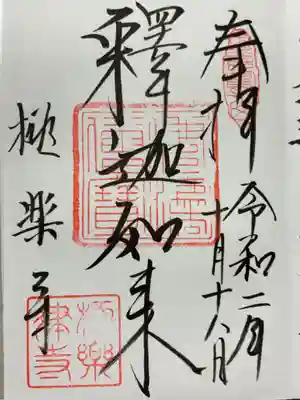 奉拝
令和二年
十月十八日
釋迦如来
極楽寺
極樂
律寺